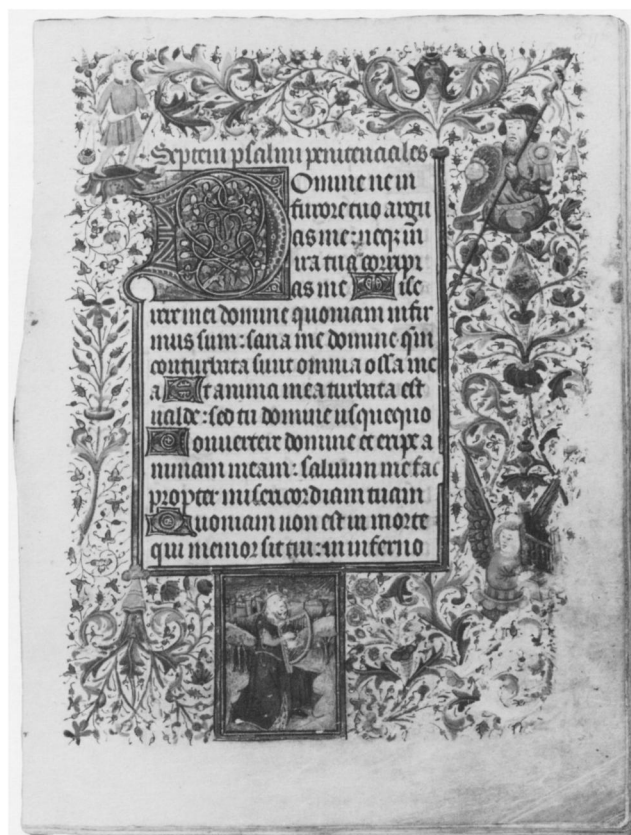 Septem psalmi penitenciales
Domine ne in
furore tuo argu
as me: neqz in
ira tua corripi
as me Mise
rere mei domine quoniam infir
mus sum: sana me domine qm̄
conturbata sunt omnia ossa me
a Et anima mea turbata est
ualde: sed tu domine usquequo
Conuertere domine et eripe a
nimam meam: saluum me fac
propter misericordiam tuam
Quoniam non est in morte
qui memor sit tui: in inferno